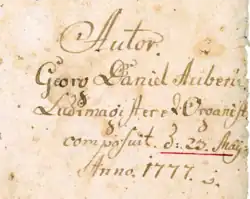 Autor.
Georg Daniel
Ludimagister & Organist
composuit. d: 23. Maij
Anno. 1777.